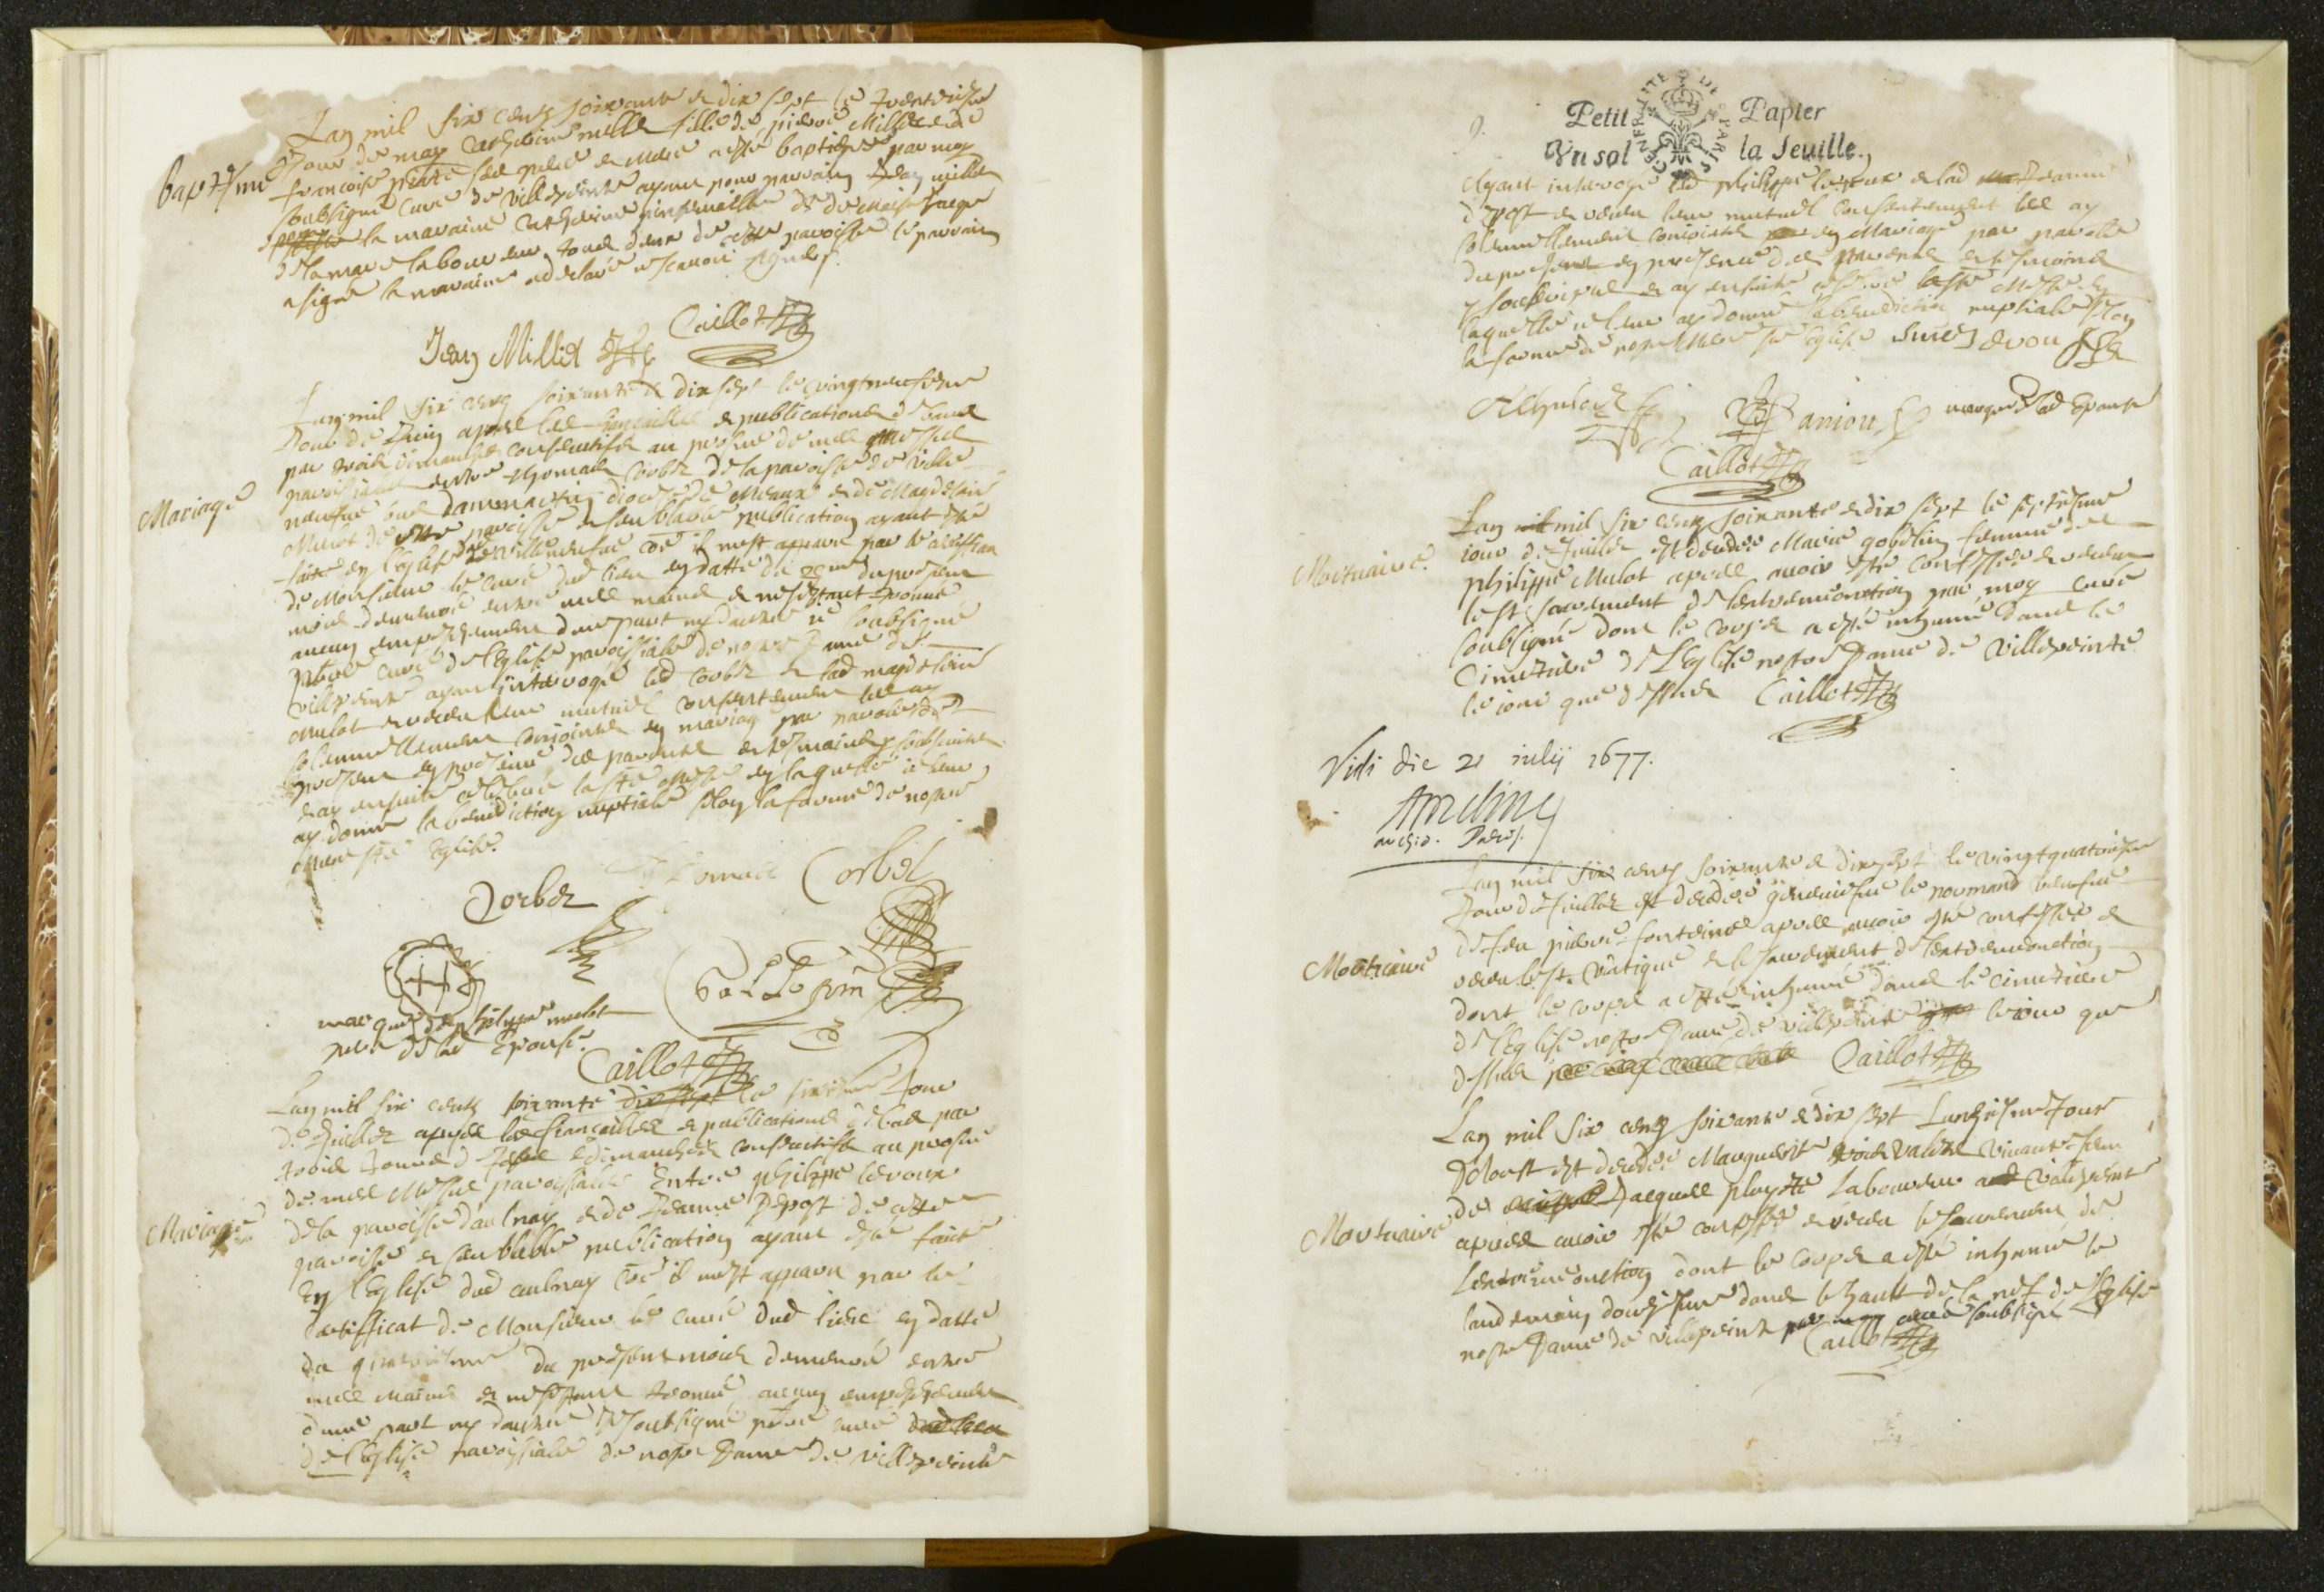 baptesme
Lan mil six cents soixante et dix sept le trentiesme
Jour de may Catherine millet fille de pierre Millet et de
francoise ses pere et mere a esté baptisée par moy
soubsigné Curé de Villepeinte ayant pour parrain Jean millet
la maraine Catherine de Jacque
Delamare laboureur tous deux de cette paroisse le parrain
a signé la maraine a declaré ne scavoir signer
Jean Millet Caillot
Mariage
Lan mil six cens soixante et dix sept le vingtneufiesme
Jour de Juin apres les fiancailles et publications de bans
par trois dimanches consecutifs au prosne de nos Messes
paroissiales entre Thomas Corbel de la paroisse de Ville
neufve soub dammartin diocese de Meaux et de Magdelaine
Mulot de cette paroisse et semblable publication ayant esté
faite en l'eglise de villeneufve comme il m'est apparu par le certificat
de Monsieur le Curé dud lieu en datte du du present
mois demeuré entre mes mains et ne s'estant trouvé
aucun empeschement d'une part ny d'autre ie soubsigné
prbre curé de l'Eglise paroissiale de nostre Dame de
villepeinte ayant interrogé led Corbel et lad magdelaine
Mulot et receu leur mutuel consentement les ay
solemnellement conjoints en mariage par paroles de
present en presence des parents et tesmoins soubsignés
et ay ensuite celebré la ste Messe en laquelle ie leur
ay donné la benediction nuptiale selon la forme de nostre
Mere ste Eglise.
Corbel Thomas Corbel
marque de philippe mulot
pere de lad Epouse.
Caillot
Mariage
Lan mil six cents soixante dix sept le sixiesme Jour
de Juillet apres les fiancailles et publications de bans par
trois Jours de dimanches consecutifs au prosne
de nos Messes paroissiales Entre philippe levoux
de la paroisse d'aulnay et de Jeanne Depost de cette
paroisse et semblable publication ayant esté faite
En l'Eglise dud aulnay comme il m'est apparu par le
Certifficat de Monsieur le curé dud lieu en datte
du du present mois demeuré entre
mes mains et ne s'estant trouvé aucun empeschement
d'une part ny d'autre Je soubsigné prbre curé dud lieu
de l'Eglise paroissiale de nostre Dame de villepeinte
9.
Petit Papier
GENERALITE DE PARIS
Vn sol la feuille.
Ayant interrogé led philippe levoux et lad Jeanne
Depost et receu leur mutuel consentement les ay
solemnellement conjoints en Mariage par parolles
de present en presence des parents et tesmoins
soubsignés et ay ensuite celebré la ste Messe en
laquelle ie leur ay donné la benediction nuptiale selon
la forme de nostre Mere ste Eglise
aniou marque de lad Epouse
Caillot
Mortuaire.
Lan mil six cents soixante et dix sept le septiesme
iour de Juillet est decedée Marie gobelin femme de
philippe Mulot apres avoir esté confessée et receu
le st sacrement de l'extremeonction par moy Curé
soubsigné dont le corps a esté inhumé dans le
Cimetiere de L'Eglise nostre Dame de Villepeinte
le iour que dessus Caillot
Vidi die 21 iulij 1677.
Ameline
archid. Paris.
Mortuaire
Lan mil six cents soixante et dix sept le vingtquatriesme
Jour de Juillet est decedée geneviefve le normand veufve
de feu pierre fontaine apres avoir esté confessée et
receu le st viatique et le sacrement de l'extremeonction
dont le corps a esté inhumé dans le cimetiere
de l'Eglise nostre Dame de villepeinte le iour que
dessus Caillot
Mortuaire
Lan mil six cents soixante et dix sept Lunziesme Jour
D'aoust est decedée Marguerite vivante femme
de Jacques laboureur a Villepeinte
apres avoir esté confessée et receu le sacrement de
l'extremeonction dont le corps a esté inhumé le
lendemain douziesme dans le hault de la nef de l'Eglise
nostre Dame de villepeinte par moy curé soubsigné
Caillot